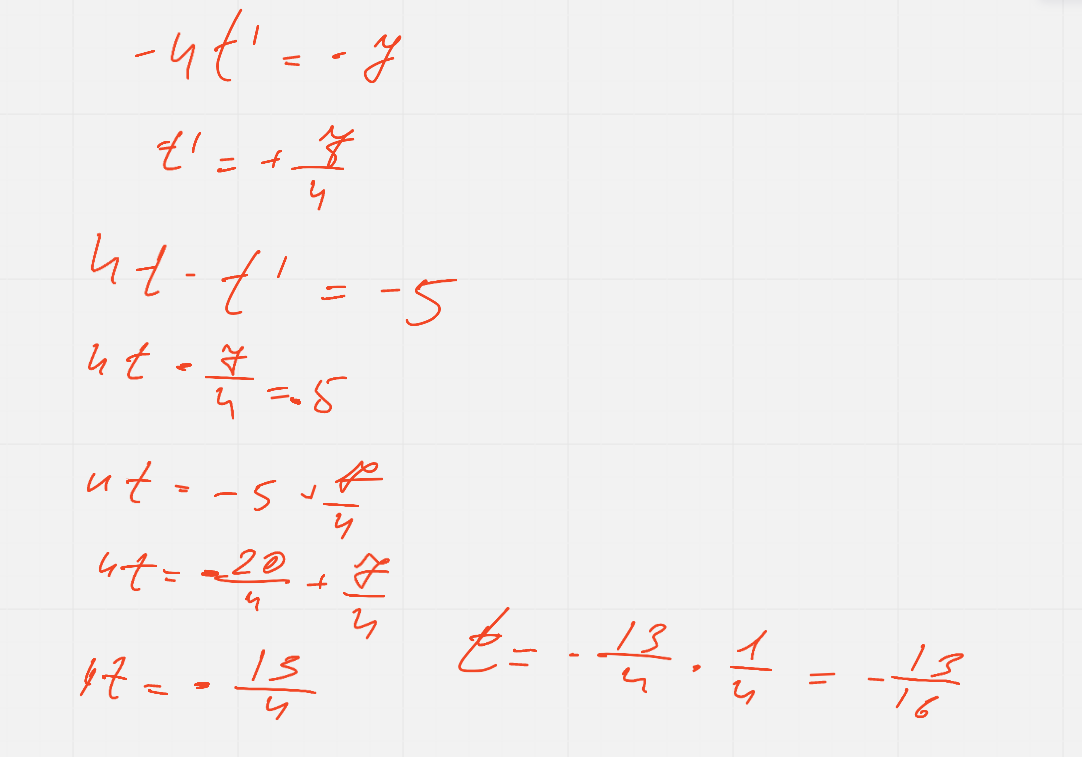 -4t' = -7
t' = +7/4
4t - t' = -5
4t - 7/4 = -5
4t = -5 + 7/4
4t = -20/4 + 7/4
4t = -13/4
t = -13/4 · 1/4 = -13/16